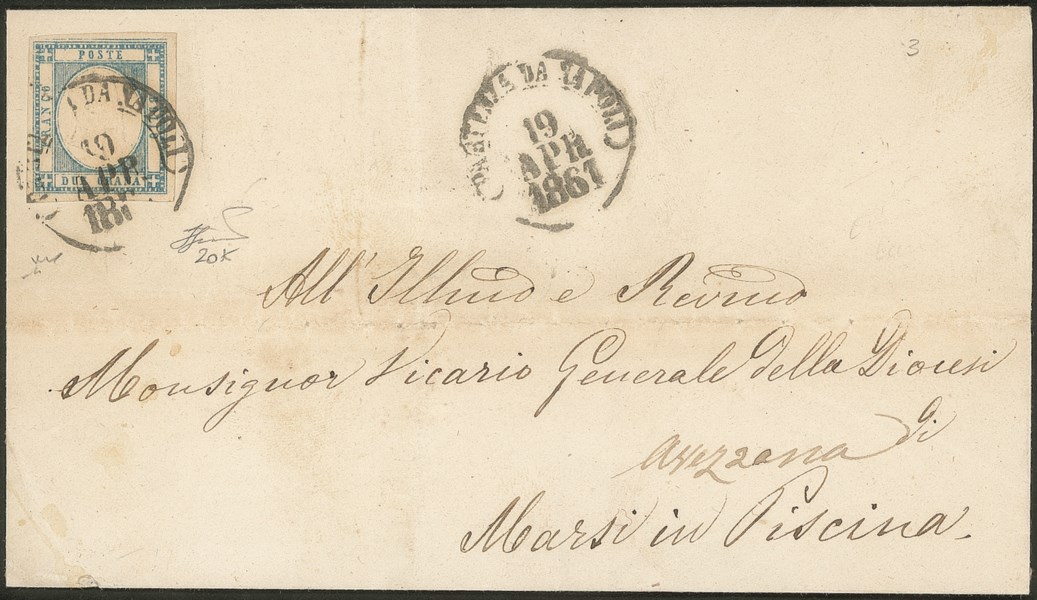 POSTE
FRANCO
DUE GRANA
DA NAPOLI
19
APR
18
PARTENZA DA NAPOLI
19
APR
1861
3
20k
All' Illmo e Revmo
Monsignor Vicario Generale della Diocesi
di
Avezzana
Marsi in Piscina.